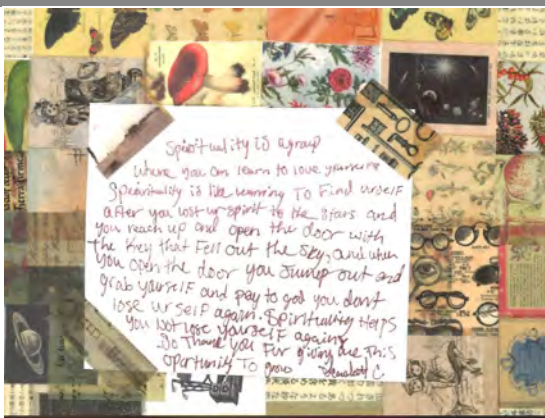 Spirituality is a group
where you can learn to love yourself
Spirituality is like learning To Find urself
after you lost ur spirit to the stars and
you reach up and open the door with
The Key that Fell out the Sky, and when
you open the door you Jump out and
grab yourself and pay to god you dont
lose urself again. Spirituality Helps
you not lose yourself again
So Thank you For giving me This
oportunity To grow
C